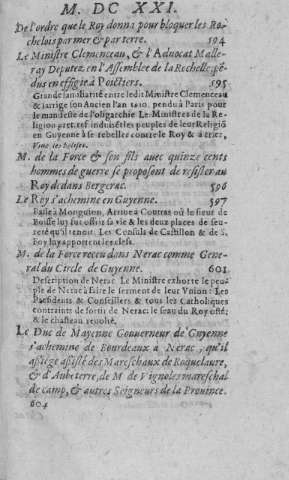 M. DC XXI.
De l'ordre que le Roy donna pour bloquer les Ro-
chelois par mer & par terre. 594
Le Ministre Clemenceau, & l'Advocat Malle-
ray Deputez en l'Assemblee de la Rochelle pē-
dus en effigie à Poictiers. 595
Grande familiarité entre ledit Ministre Clemenceau
& Iarrige son Ancien l'an 1610. pendu à Paris pour
le manifeste de l'oligarchie Le Ministres de la Re-
ligion pret. ref. induisēt les peuples de leur Religiō
en Guyenne à se rebeller contre le Roy & à crier,
Vive les
M. de la Force & son fils avec quinze cents
hommes de guerre se proposent de resister au
Roy dedans Bergerac. 596
Le Roy s'achemine en Guyenne. 597
Passe à Monguion. Arrive à Coutras où le sieur de
Boisse luy fut offrir sa vie & les deux places de seu-
reté qu'il tenoit. Les Consuls de Castillon & de S.
Foy luy apportent les clefs.
M. de la Force receu dans Nerac comme Gene-
ral du Circle de Guyenne. 601
Description de Nerac. Le Ministre exhorte le peu-
ple de Nerac à faire le serment de leur Vnion: Les
Presidents & Conseillers & tous les Catholiques
contraints de sortir de Nerac: le seau du Roy osté:
& le chasteau revolté.
Le Duc de Mayenne Gouverneur de Guyenne
s'achemine de Bourdeaux à Nerac, qu'il
assiege assisté des Mareschaux de Roquelaure,
& d'Aubeterre, de M de Vignoles mareschal
de camp, & autres Seigneurs de la Province.
604